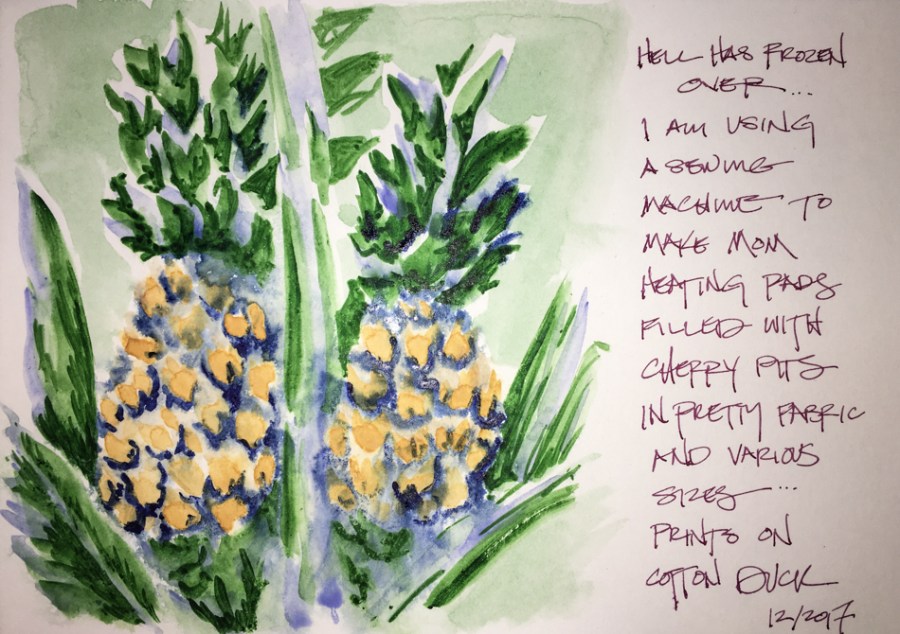 HELL HAS FROZEN
OVER...
I AM USING
A SEWING
MACHINE TO
MAKE MOM
HEATING PADS
FILLED WITH
CHERRY PITS
IN PRETTY FABRIC
AND VARIOUS
SIZES...
PRINTS ON
COTTON DUCK
12/2017